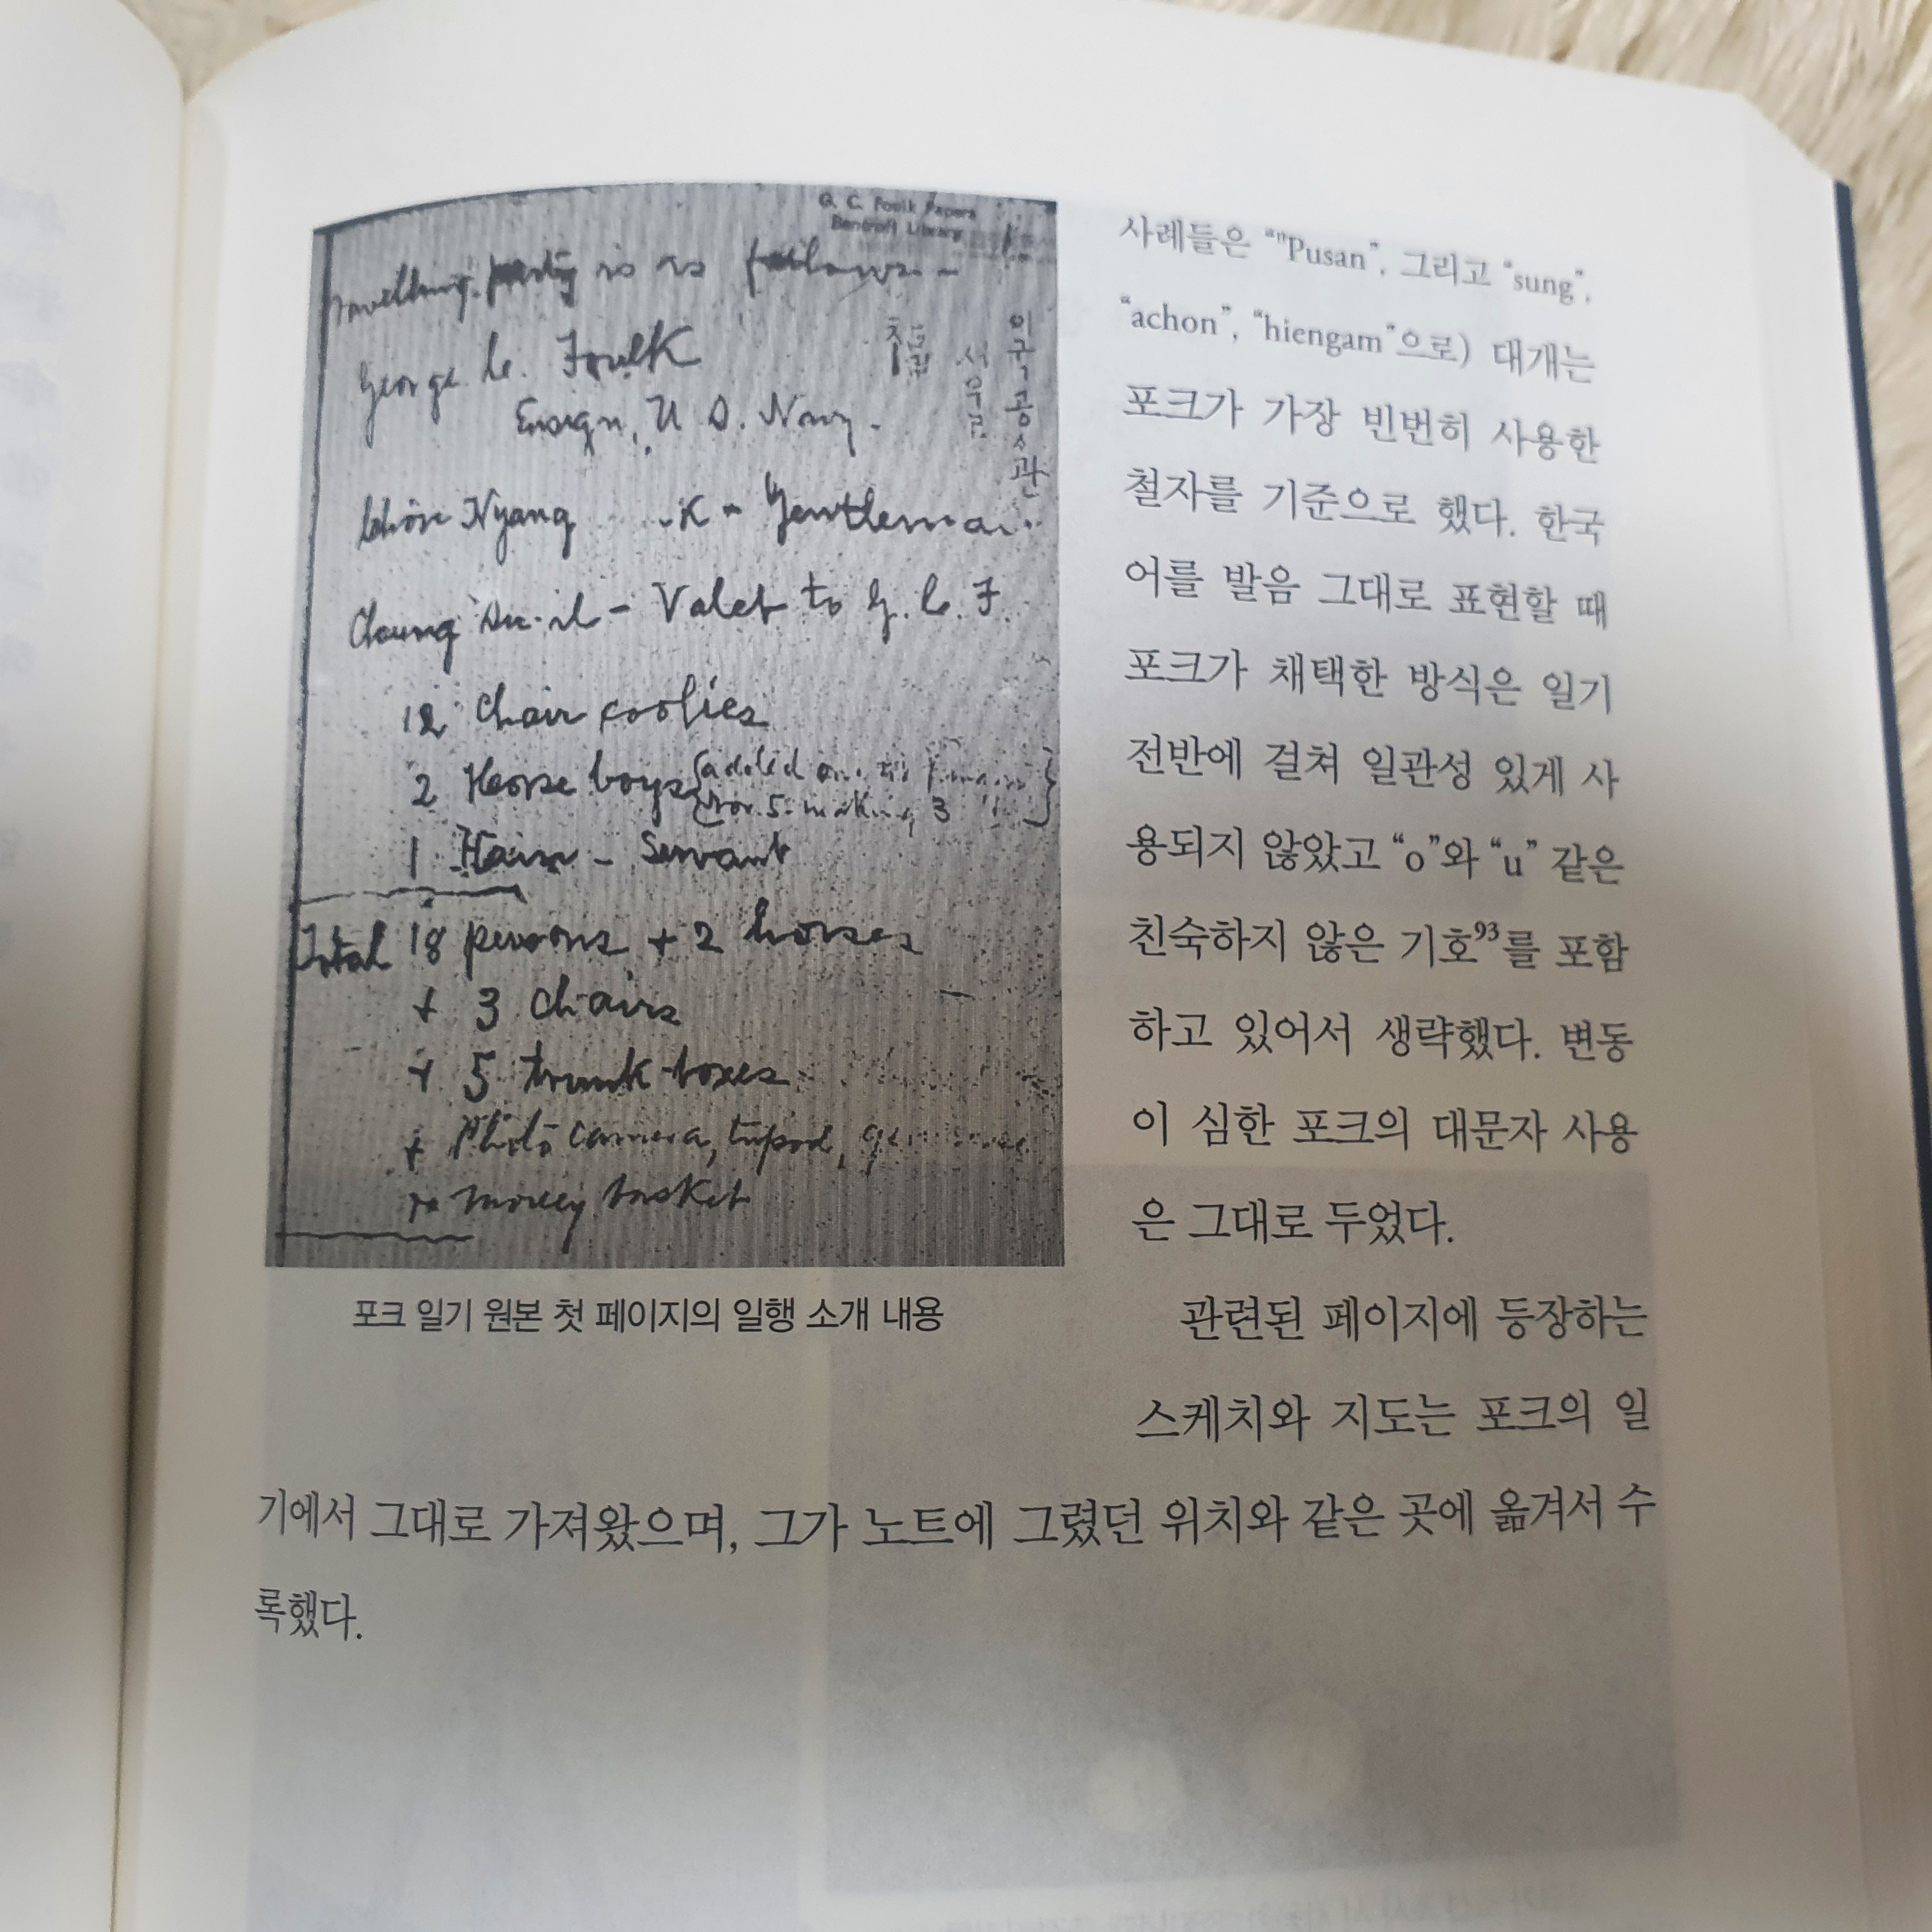 G. C. Foulk Papers
Bancroft Library
Travelling party is as follows -
George C. Foulk
Ensign, U. S. Navy.
미국공사관
서우크
Chön Nyang - K - Gentleman
Choung Su-il - Valet to G. C. F.
12 Chair coolies
2 Horse boys {added one
Nov. 5. making 3
1 - Servant
Total 18 persons + 2 horses
+ 3 chairs
+ 5 trunk-boxes
+ Photo camera, tripod,
money basket
포크 일기 원본 첫 페이지의 일행 소개 내용
사례들은 “"Pusan”, 그리고 “sung”,
“achon”, “hiengam”으로) 대개는
포크가 가장 빈번히 사용한
철자를 기준으로 했다. 한국
어를 발음 그대로 표현할 때
포크가 채택한 방식은 일기
전반에 걸쳐 일관성 있게 사
용되지 않았고 “o”와 “u” 같은
친숙하지 않은 기호93를 포함
하고 있어서 생략했다. 변동
이 심한 포크의 대문자 사용
은 그대로 두었다.
관련된 페이지에 등장하는
스케치와 지도는 포크의 일
기에서 그대로 가져왔으며, 그가 노트에 그렸던 위치와 같은 곳에 옮겨서 수
록했다.